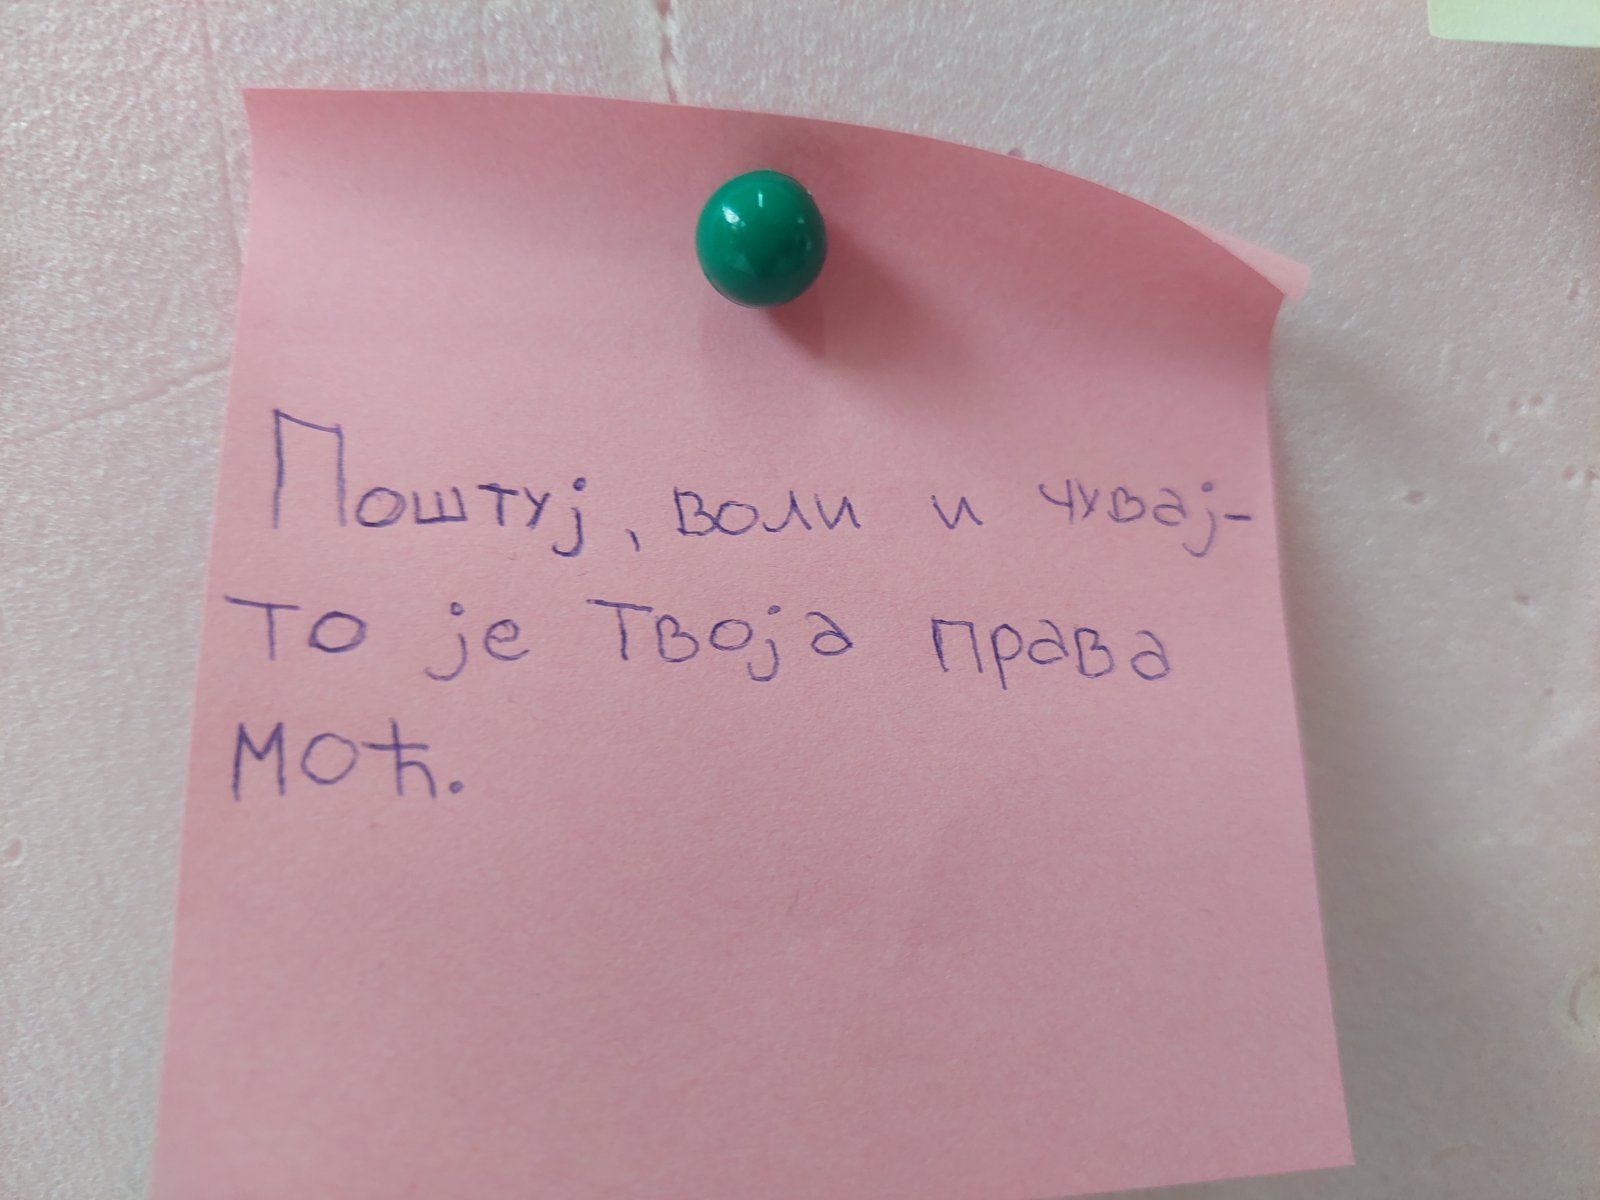 Поштуј, воли и чувај-
то је твоја права
моћ.